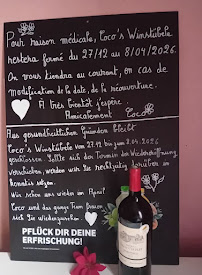 Pour raison médicale, Coco's Winstubele
restera fermé du 27/12 au 8/04/2026.
On vous tiendra au courant, en cas de
modification de la date, de la réouverture.
À très bientôt j'espère
Amicalement Coco
Aus gesundheitlichen Gründen bleibt
Coco's Winstubele vom 27.12 bis zum 8.04.2026
geschlossen. Sollte sich der Termin der Wiedereröffnung
verschieben, werden wir Sie rechtzeitig darüber in
Kenntnis setzen.
Wir sehen uns wieder im April!
Coco und das ganze Team freuen
sich Sie wiederzusehen.
PFLÜCK DIR DEINE
ERFRISCHUNG!